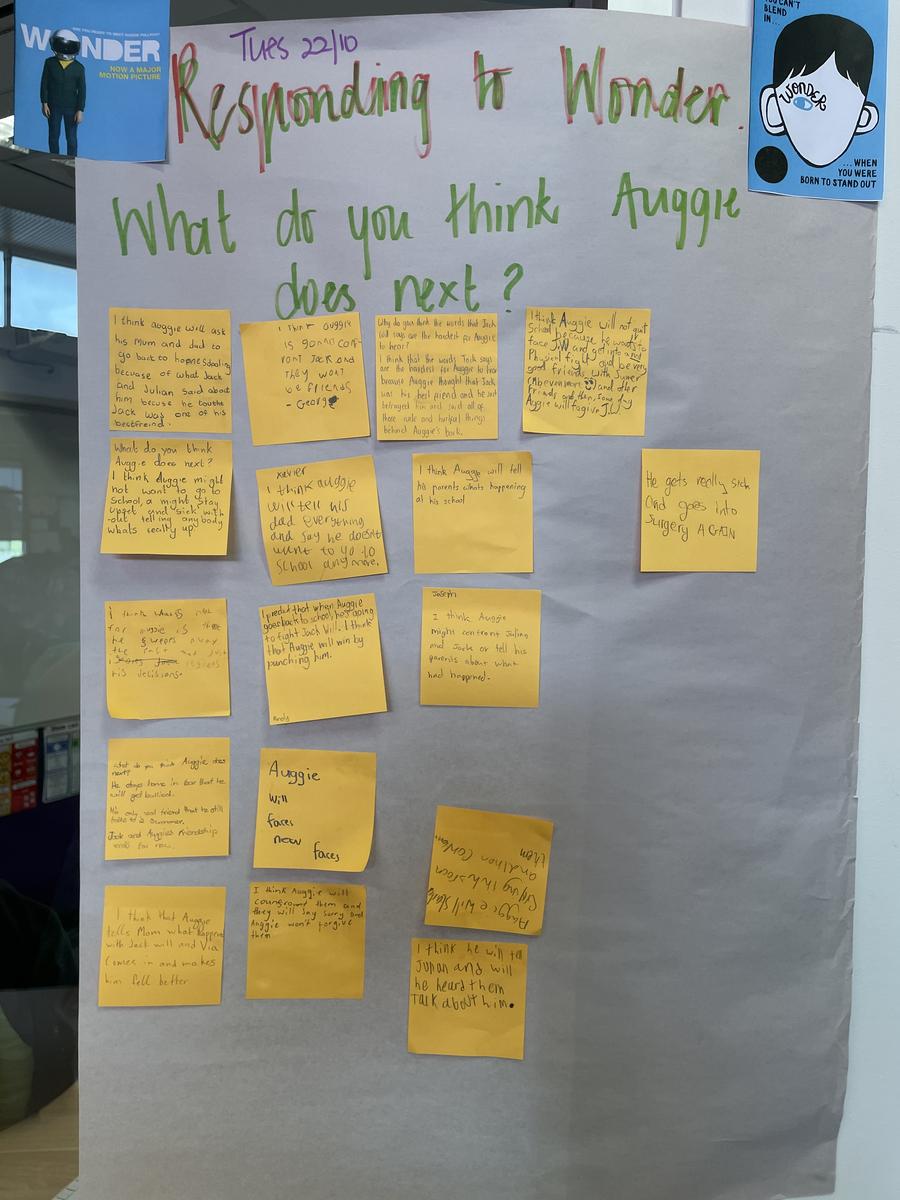 WONDER
NOW A MAJOR
MOTION PICTURE
Tues 22/10
YOU CAN'T
BLEND
IN...
WONDER
...WHEN
YOU WERE
BORN TO STAND OUT
Responding to Wonder.
What do you think Auggie
does next?
I think auggie will ask
his Mum and dad to
go back to
because of what Jack
and Julian said about
him
Jack was one of his
bestfreind.
I think auggie
is gonna con-
ront Jack and
They won't
be friends
- George
Why do you think the words that Jack
Will says are the hardest for Auggie
to hear?
I think that the words Jack says
are the hardest for Auggie to hear
because Auggie thought that Jack
was his best friend and he just
betrayed him and said all of
those rude and hurtful things
behind Auggie's back.
I think Auggie will not quit
School because he wants to
face J.W and get into a
Physical fight and be very
good friends with Summer
and other
friends and then some day
Auggie will forgive J.W
What do you think
Auggie does next?
I think Auggie might
not want to go to
school, a might stay
upset and "sick" with
-out telling anybody
whats really up
xavier
I think auggie
will tell his
dad everything
and say he doesnt
want to go to
school any more.
I think Auggie will tell
his parents whats happening
at his school
He gets really sick
and goes into
surgery AGAIN
i think whats next
for auggie is
he
the
his decisions.
I predict that when Auggie
goes back to school, he's going
to fight Jack Will. I think
that Auggie will win by
punching him.
Joseph
I think Auggie
might confront Julian
and Jack or tell his
parents about what
had happened.
What do you think Auggie does
next?
He stays home in fear that he
will get bullied.
His only real friend that he still
talks to is Summer.
Jack and Auggies friendship
ends for now.
Auggie
will
faces
new
faces
Auggie will start
Crying
and
them
I think that Auggie
tells Mom what happened
with Jack will and Via
Comes in and makes
him fell better
I think Auggie will
counfront them and
they will say sorry and
Auggie won't forgive
them
I think he will tell
and will
he heard them
Talk about him.